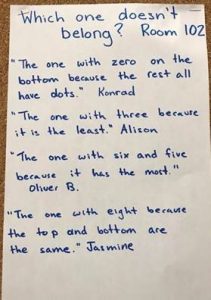 Which one doesn't
belong? Room 102
"The one with zero on the
bottom because the rest all
have dots." Konrad
"The one with three because
it is the least." Alison
"The one with six and five
because it has the most."
Oliver B.
"The one with eight because
the top and bottom are
the same." Jasmine